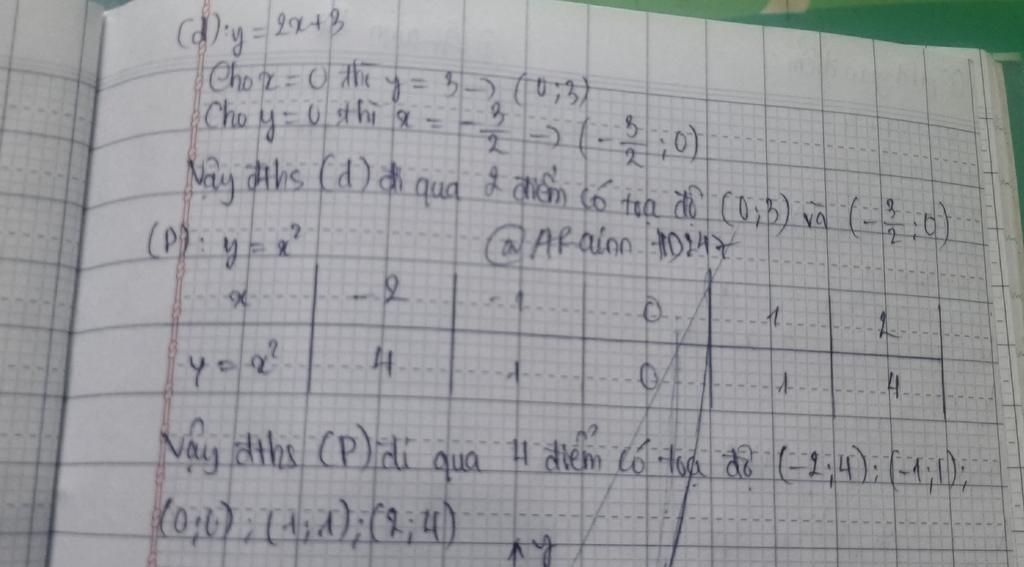 (d): y = 2x+3
Cho x = 0 thì y = 3 → (0;3)
Cho y = 0 thì x = -3/2 → (-3/2;0)
Vậy đths (d) đi qua 2 điểm có toạ độ (0;3) và (-3/2;0)
(P): y = x²
x -2 -1 0 1 2
y = x² 4 1 0 1 4
Vậy đths (P) đi qua 4 điểm có toạ độ (-2;4); (-1;1);
(0;0); (1;1); (2;4)
y